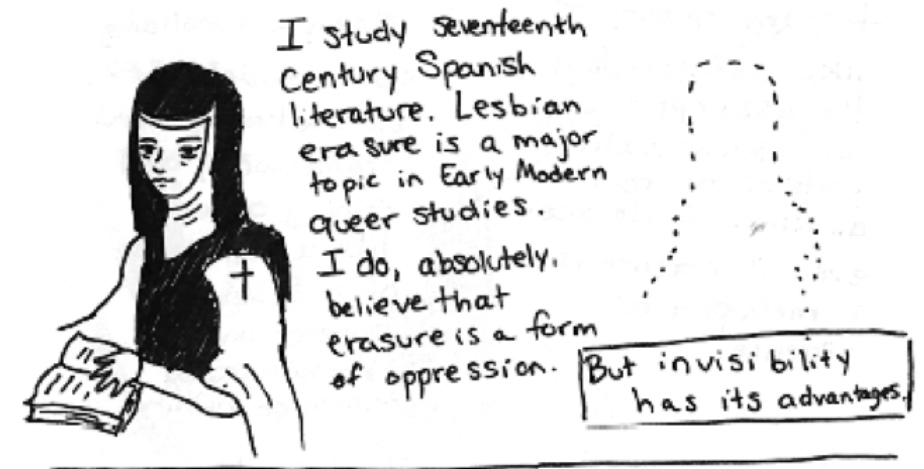 I study seventeenth
Century Spanish
literature. Lesbian
erasure is a major
topic in Early Modern
queer studies.
I do, absolutely,
believe that
erasure is a form
of oppression.
But invisibility
has its advantages.